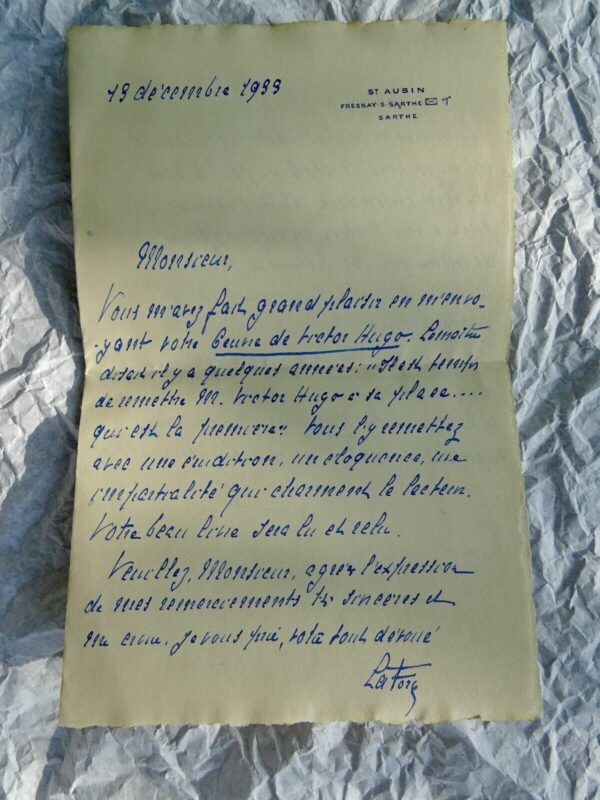 19 décembre 1933
ST AUBIN
FRESNAY-S-SARTHE
SARTHE
Monsieur,
Vous m'avez fait grand plaisir en m'envo-
yant votre Oeuvre de Victor Hugo. Lemaître
disait il y a quelques années : "Il est temps
de remettre M. Victor Hugo à sa place....
qui est la première" Vous l'y remettez
avec une érudition, une éloquence, une
impartialité qui charment le lecteur.
Votre beau livre sera lu et relu.
Veuillez, Monsieur, agréer l'expression
de mes remerciements très sincères et
me croire, je vous prie, votre tout dévoué
La Force